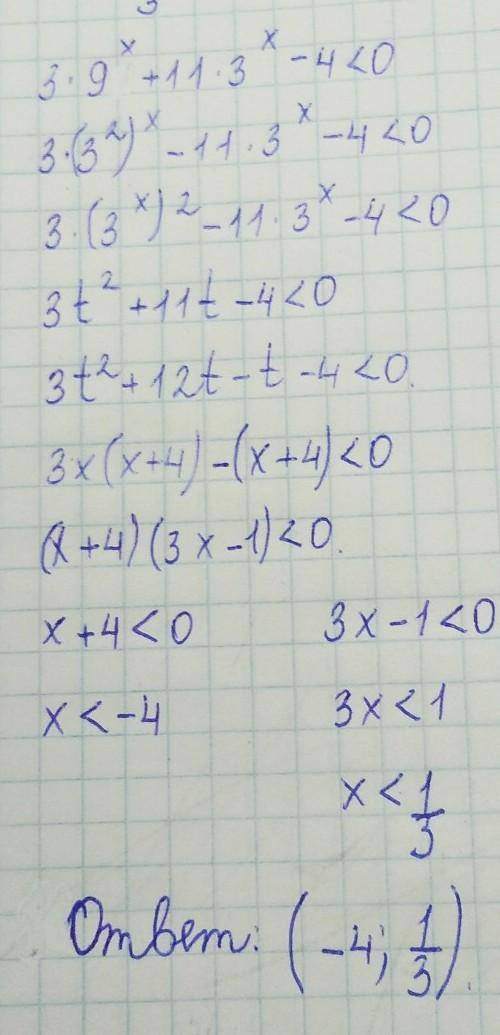 3·9^x +11·3^x -4<0
3·(3^2)^x -11·3^x -4<0
3·(3^x)^2 -11·3^x -4<0
3t^2 +11t -4<0
3t^2 +12t -t -4<0.
3x(x+4) -(x+4)<0
(x+4)(3x-1)<0.
x+4<0 3x-1<0
x<-4 3x<1
x<1/3
Ответ: (-4; 1/3).